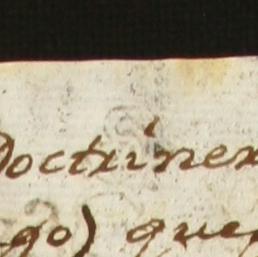 Doctriner
go) que